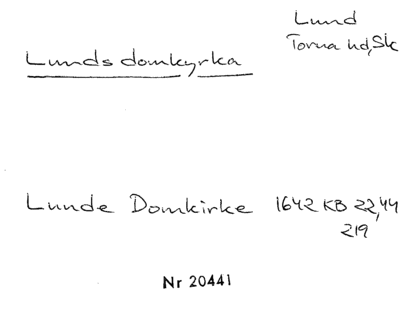 Lund
Torna hd, Sk
Lunds domkyrka
Lunde Domkirke 1642 KB 22,44
219
Nr 20441